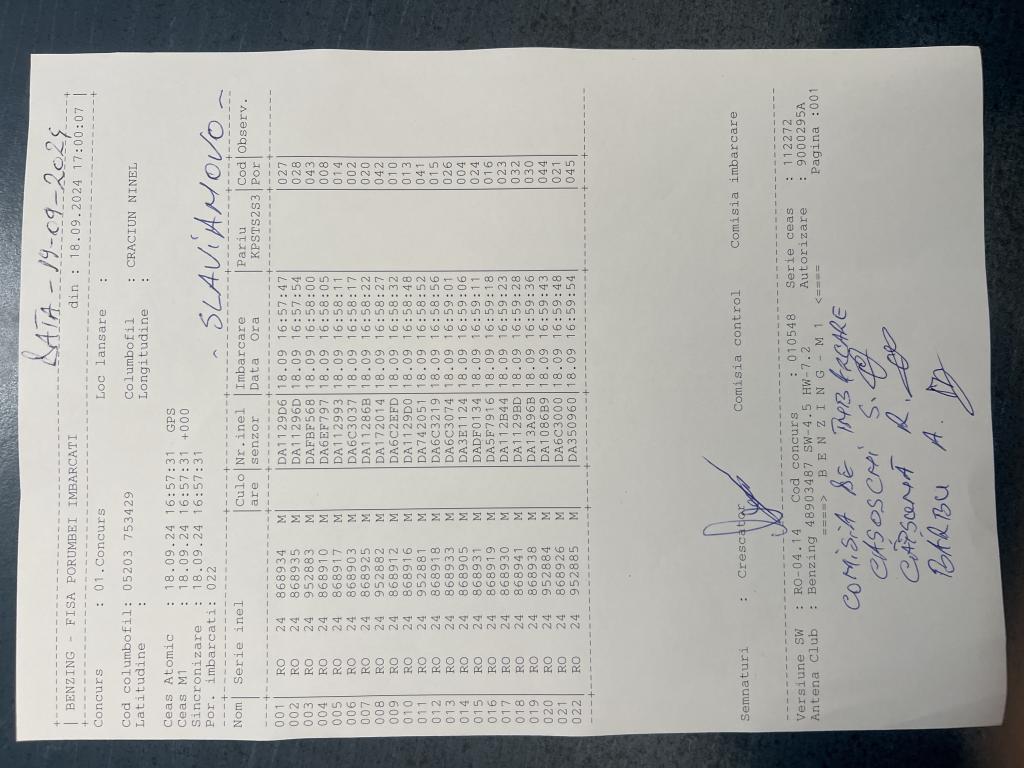 DATA - 19-09-2024
| BENZING - FISA PORUMBEI IMBARCATI din : 18.09.2024 17:00:07 |
Concurs : 01.Concurs Loc lansare :
Cod columbofil: 05203 753429 Columbofil : CRACIUN NINEL
Latitudine : Longitudine :
Ceas Atomic : 18.09.24 16:57:31 GPS
Ceas M1 : 18.09.24 16:57:31 +000
Sincronizare : 18.09.24 16:57:31
Por. imbarcati: 022
- SLAVIAMOVO -
Nom | Serie inel |Culo|Nr.inel |Imbarcare |Pariu |Cod|Observ.
|are |senzor |Data Ora |KPSTS2S3|Por|
001 | RO 24 868934 M | |DA1129D6|18.09 16:57:47| |027|
002 | RO 24 868935 M | |DA11296D|18.09 16:57:54| |028|
003 | RO 24 952883 M | |DAFBF568|18.09 16:58:00| |043|
004 | RO 24 868911 M | |DA6EF797|18.09 16:58:05| |008|
005 | RO 24 868917 M | |DA112993|18.09 16:58:11| |014|
006 | RO 24 868903 M | |DA6C3037|18.09 16:58:17| |002|
007 | RO 24 868925 M | |DA11286B|18.09 16:58:22| |020|
008 | RO 24 952882 M | |DA172014|18.09 16:58:27| |042|
009 | RO 24 868912 M | |DA6C2EFD|18.09 16:58:32| |010|
010 | RO 24 868916 M | |DA1129D0|18.09 16:58:48| |013|
011 | RO 24 952881 M | |DA742051|18.09 16:58:52| |041|
012 | RO 24 868918 M | |DA6C3219|18.09 16:58:56| |015|
013 | RO 24 868933 M | |DA6C3074|18.09 16:59:01| |026|
014 | RO 24 868905 M | |DA3E1124|18.09 16:59:06| |004|
015 | RO 24 868931 M | |DADF0134|18.09 16:59:11| |024|
016 | RO 24 868919 M | |DA5F7916|18.09 16:59:18| |016|
017 | RO 24 868930 M | |DA112B44|18.09 16:59:23| |023|
018 | RO 24 868941 M | |DA1129BD|18.09 16:59:28| |032|
019 | RO 24 868938 M | |DA13A96B|18.09 16:59:36| |030|
020 | RO 24 952884 M | |DA1086B9|18.09 16:59:43| |044|
021 | RO 24 868926 M | |DA6C3000|18.09 16:59:48| |021|
022 | RO 24 952885 M | |DA350960|18.09 16:59:54| |045|
Semnaturi : Crescator Comisia control Comisia imbarcare
Versiune SW : RO-04.14 Cod concurs : 010548 Serie ceas : 112272
Antena Club : Benzing 48903487 SW-4.5 HW-7.2 Autorizare : 9000295A
====> B E N Z I N G - M 1 <==== Pagina :001
COMISIA DE IMBARCARE
CIASOSCHI S.
R.
BARBU A.